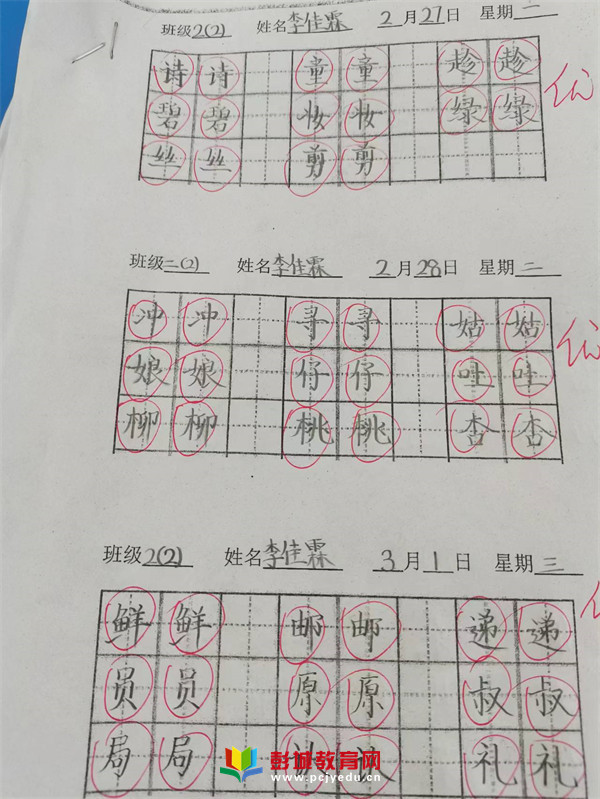 班级2(2) 姓名李佳霖 2月27日 星期一
诗诗 童童 趁趁
碧碧 妆妆 绿绿
丝丝 剪剪
优
班级二(2) 姓名李佳霖 2月28日 星期二
冲冲 寻寻 姑姑
娘娘 仔仔 吐吐
柳柳 桃桃 杏杏
优
班级2(2) 姓名李佳霖 3月1日 星期三
鲜鲜 邮邮 递递
员员 原原 叔叔
局局 礼礼
彭城教育网
www.pcjyedu.cn